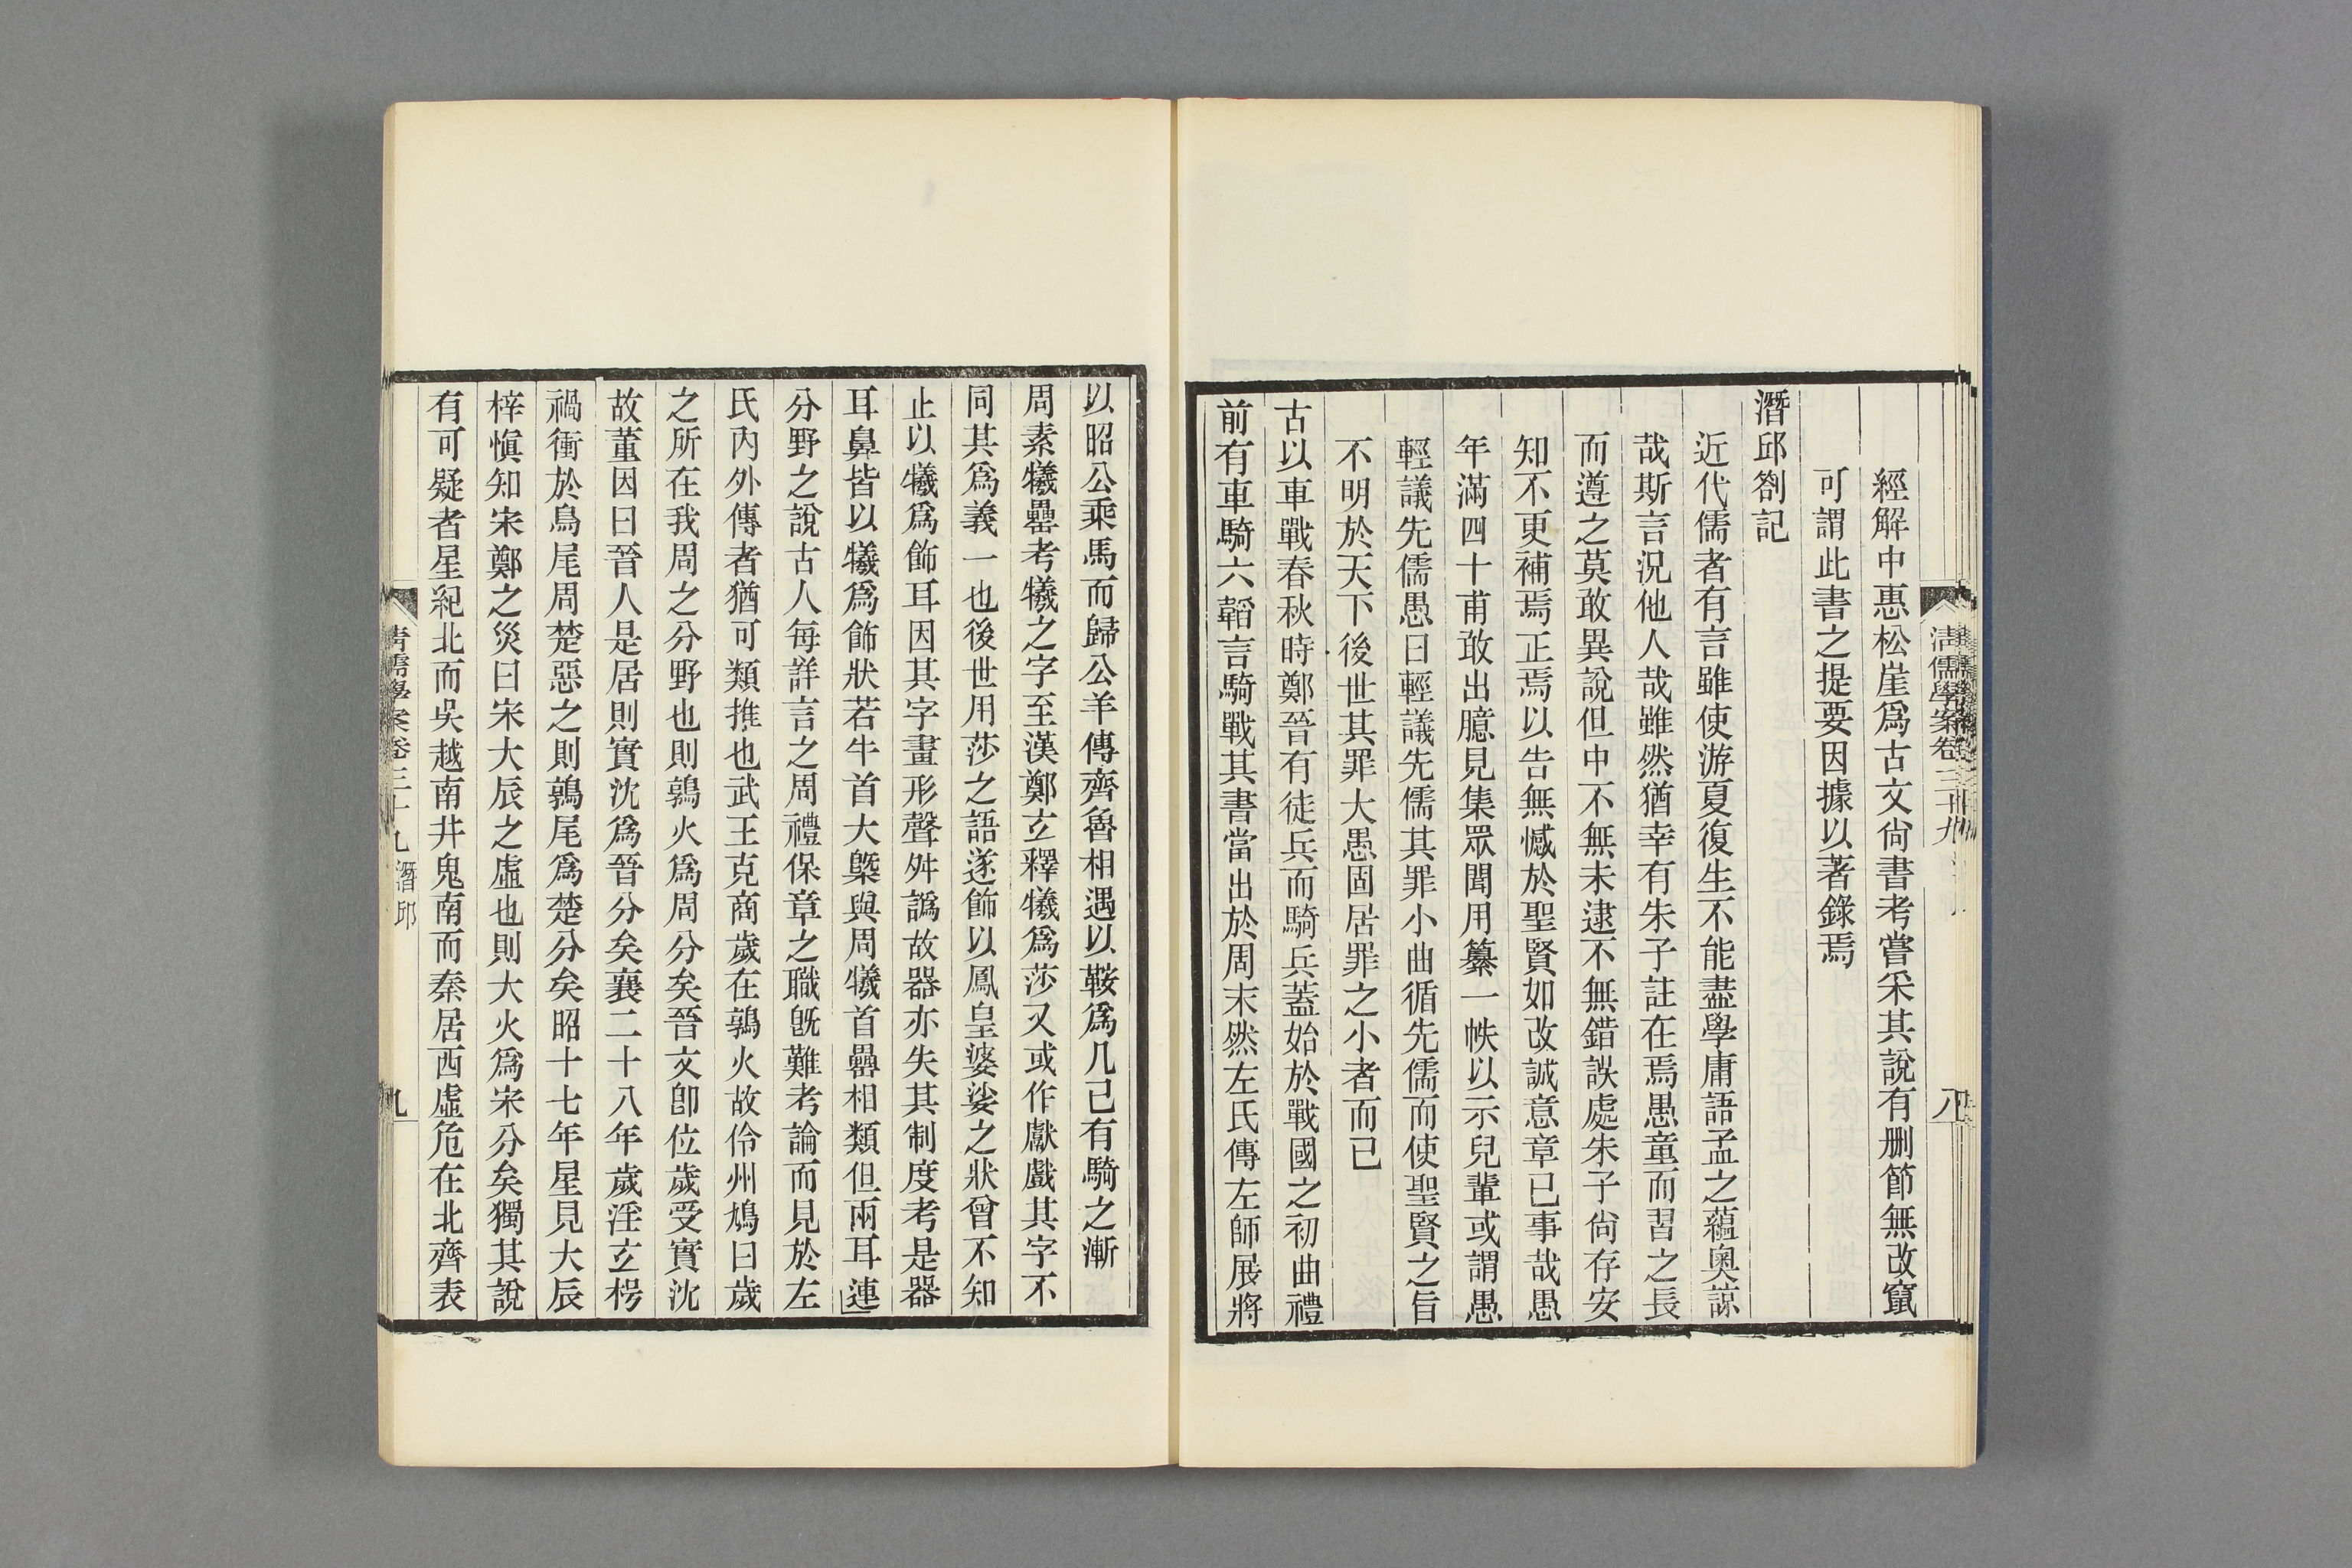 清儒學案卷三十九
八
經解中惠松崖爲古文尙書考嘗采其說有删節無改竄
可謂此書之提要因據以著錄焉
潛邱劄記
近代儒者有言雖使游夏復生不能盡學庸語孟之蘊奧諒
哉斯言況他人哉雖然猶幸有朱子註在焉愚童而習之長
而遵之莫敢異說但中不無未逮不無錯誤處朱子尙存安
知不更補焉正焉以告無憾於聖賢如改誠意章已事哉愚
年滿四十甫敢出臆見集眾聞用纂一帙以示兒輩或謂愚
輕議先儒愚曰輕議先儒其罪小曲循先儒而使聖賢之旨
不明於天下後世其罪大愚固居罪之小者而已
古以車戰春秋時鄭晉有徒兵而騎兵蓋始於戰國之初曲禮
前有車騎六韜言騎戰其書當出於周末然左氏傳左師展將
以昭公乘馬而歸公羊傳齊魯相遇以鞍爲几已有騎之漸
周素犧罍考犧之字至漢鄭玄釋犧爲莎又或作獻戲其字不
同其爲義一也後世用莎之語遂飾以鳳皇婆娑之狀曾不知
止以犧爲飾耳因其字畫形聲舛譌故器亦失其制度考是器
耳鼻皆以犧爲飾狀若牛首大槩與周犧首罍相類但兩耳連
分野之說古人每詳言之周禮保章之職旣難考論而見於左
氏內外傳者猶可類推也武王克商歲在鶉火故伶州鳩曰歲
之所在我周之分野也則鶉火爲周分矣晉文卽位歲受實沈
故董因曰晉人是居則實沈爲晉分矣襄二十八年歲淫玄枵
禍衝於鳥尾周楚惡之則鶉尾爲楚分矣昭十七年星見大辰
梓愼知宋鄭之災曰宋大辰之虛也則大火爲宋分矣獨其說
有可疑者星紀北而吳越南井鬼南而秦居西虛危在北齊表
清儒學案卷三十九 潛邱
九